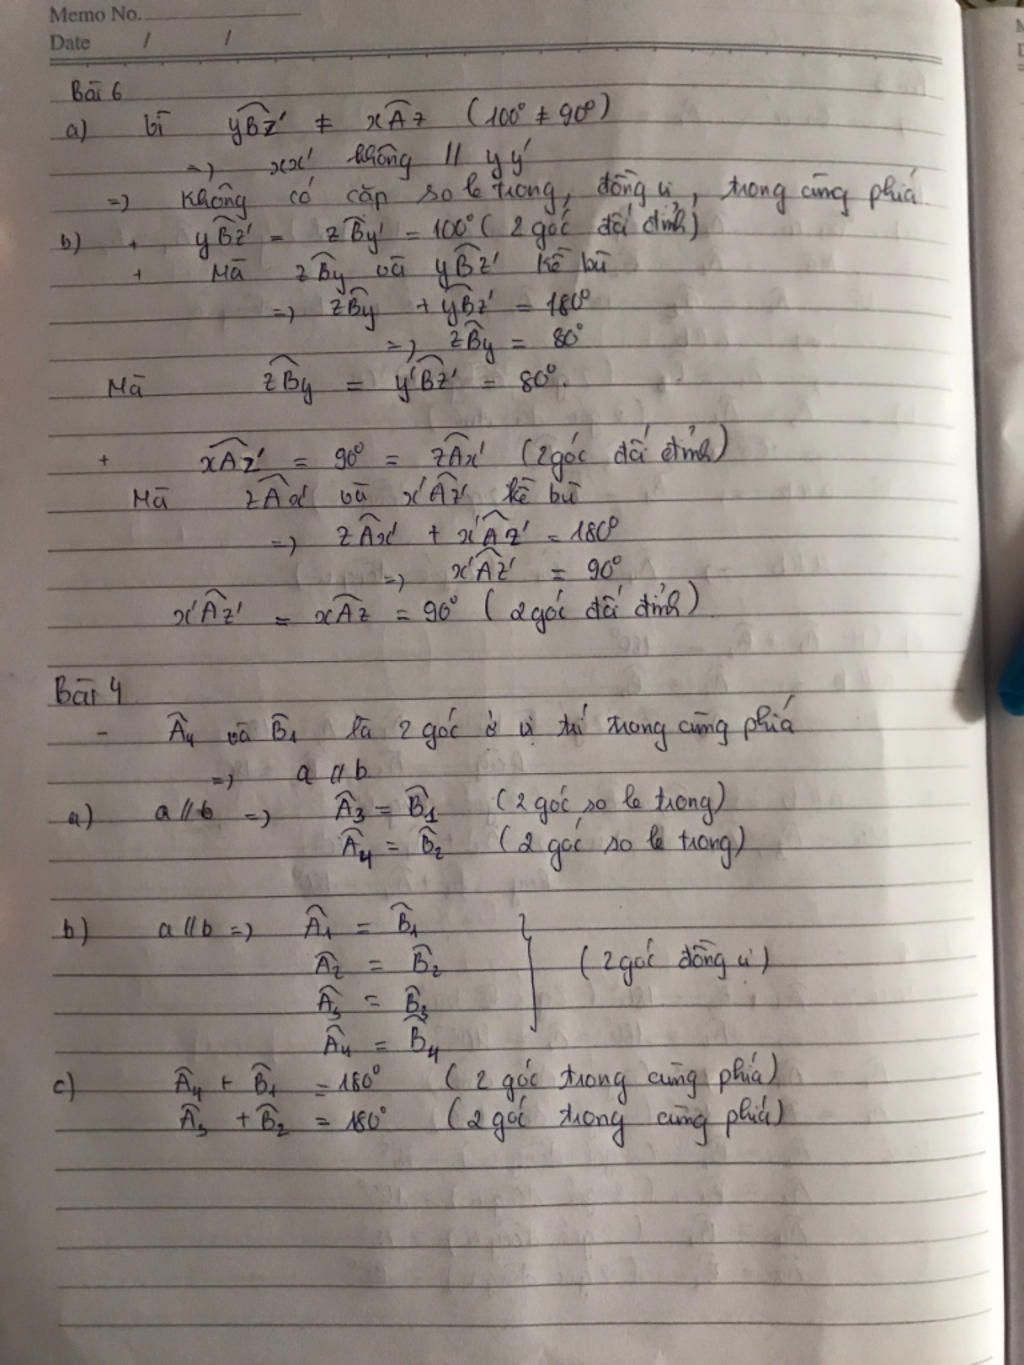 Memo No.
Date / /
Bài 6
a) Vì yB̂z' ≠ xÂz (100° ≠ 90°)
=> xx' không // yy'
=> Không có cặp so le trong, đồng vị, trong cùng phía
b) + yB̂z' = zB̂y' = 100° (2 góc đối đỉnh)
+ Mà zB̂y và yB̂z' kề bù
=> zB̂y + yB̂z' = 180°
=> zB̂y = 80°
Mà zB̂y = y'B̂z' = 80°.
+ xÂz' = 90° = zÂx' (2 góc đối đỉnh)
Mà zÂx' và x'Âz' kề bù
=> zÂx' + x'Âz' = 180°
=> x'Âz' = 90°
x'Âz' = xÂz = 90° (2 góc đối đỉnh)
Bài 4
- Â4 và B̂1 là 2 góc ở vị trí trong cùng phía
=> a // b
a) a // b => Â3 = B̂1 (2 góc so le trong)
Â4 = B̂2 (2 góc so le trong)
b) a // b => Â1 = B̂1
Â2 = B̂2 (2 góc đồng vị)
Â3 = B̂3
Â4 = B̂4
c) Â4 + B̂1 = 180° (2 góc trong cùng phía)
Â3 + B̂2 = 180° (2 góc trong cùng phía)